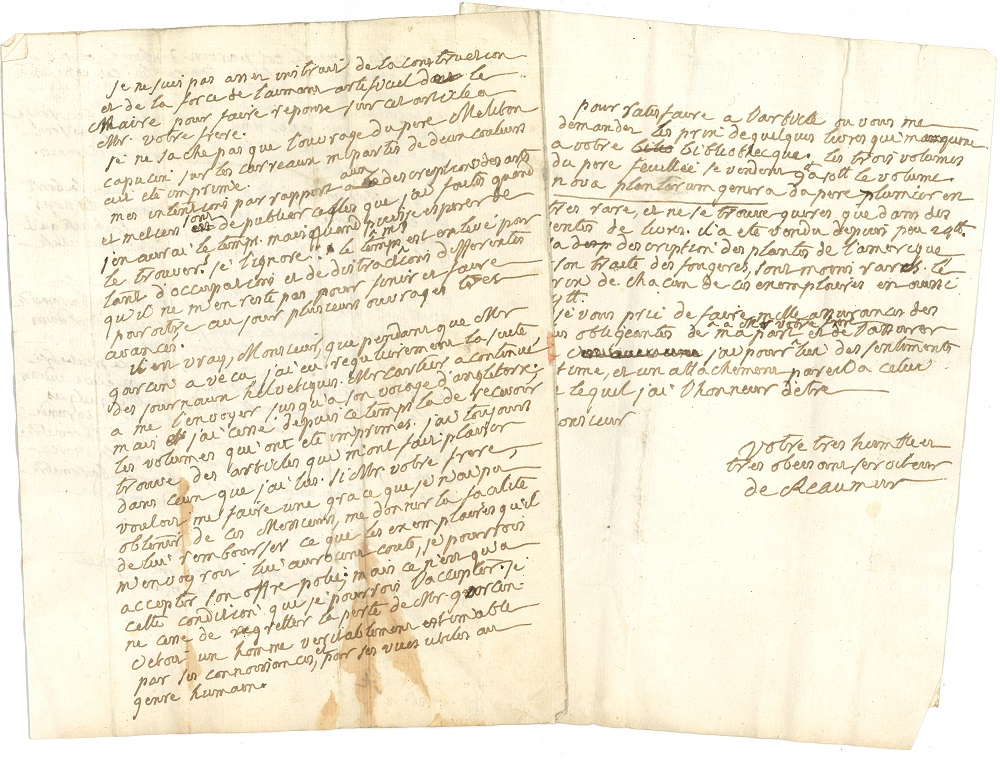 je ne suis pas assez instruit de la construction
et de la force de l'aimant artificiel dont le
Maire pour faire reponse sur cet article a
Mr. votre frere.
je ne sache pas que l'ouvrage du pere
capucin sur les carreaux mi partis de deux couleurs
ait ete imprimé.
mes intentions par rapport aux descriptions des arts
et metiers sont de publier celles que j'ai faites quand
j'en aurai le temps. mais quand puis je esperer de
le trouver? je l'ignore: le temps m'est enlevé par
tant d'occupations et de distractions differentes
qu'il ne m'en reste pas pour finir et faire
paroitre au jour plusieurs ouvrages tres
avancés.
il est vrai, Monsieur, que pendant que Mr
garcin a vecu, j'ai eu regulierement la suite
des journaux helvetiques. Mr cartier a continué
a me l'envoyer jusqu'a son voiage d'angleterre.
mais j'ai cessé depuis ce temps la de recevoir
les volumes qui ont ete imprimes. j'ai toujours
trouvé des articles qui m'ont fait plaisir
dans ceux que j'ai lus. si Mr votre frere,
vouloit me faire une grace que je n'ai pu
obtenir de ces Messieurs, me donner la facilité
de lui rembourser ce que les exemplaires qu'il
m'envoyroit lui auroient couté, je pourrois
accepter son offre polie; mais ce n'est qu'a
cette condition que je pourrois l'accepter. je
ne cesse de regretter la perte de Mr garcin.
c'etoit un homme veritablement estimable
par ses connoissances, et par ses vues utiles au
genre humain.
pour satisfaire a l'article ou vous me
demandez les prix de quelques livres qui manquent
a votre bibliothecque. les trois volumes
du pere feuillée se vendent le volume.
nova plantarum genera du pere plumier en
tres rare, et ne se trouve gueres que dans des
entes de livres. il a ete vendu depuis peu 24tt.
a description des plantes de l'amerique
son traité des fougeres, sont moins rares. le
de chacun de ces exemplaires en aussi
tt.
je vous prie de faire mille assurances des
us obligeantes de ma part a Mr votre frere et de l'assurer
j'ai pour lui des sentiments
time, et un attachement pareil a celui
lequel j'ai l'honneur d'etre
onsieur
Votre tres humble et
tres obeissant serviteur
de Reaumur